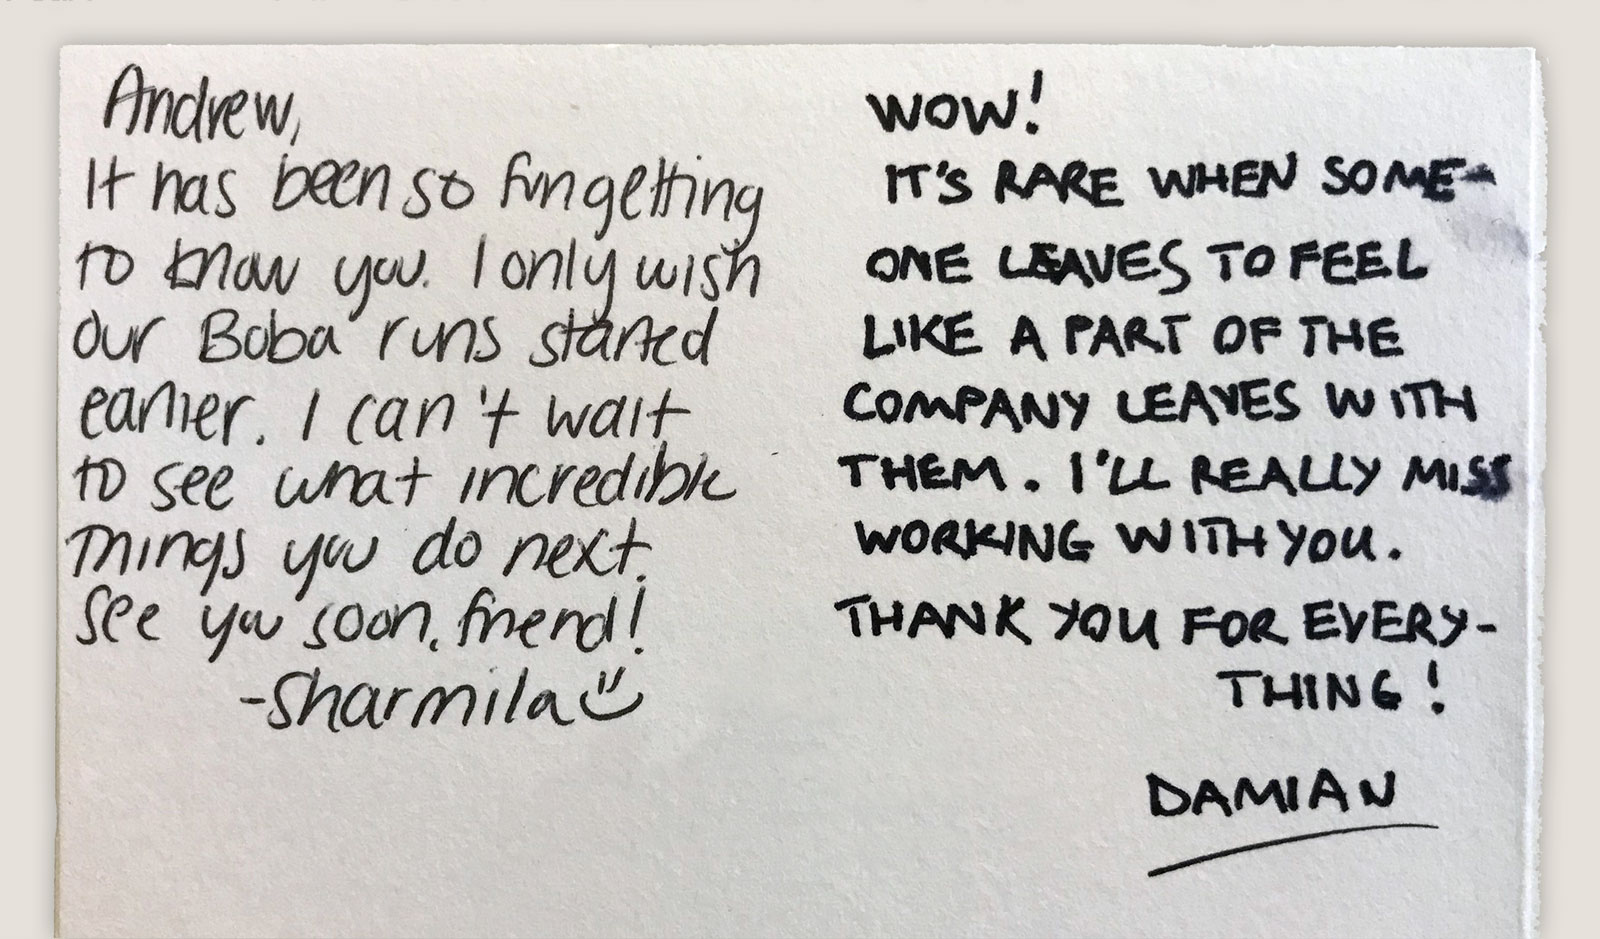 Andrew,
It has been so fun getting
to know you. I only wish
our Boba runs started
earlier. I can't wait
to see what incredible
things you do next.
See you soon, friend!
-Sharmila
WOW!
IT'S RARE WHEN SOME-
ONE LEAVES TO FEEL
LIKE A PART OF THE
COMPANY LEAVES WITH
THEM. I'LL REALLY MISS
WORKING WITH YOU.
THANK YOU FOR EVERY-
THING!
DAMIAN